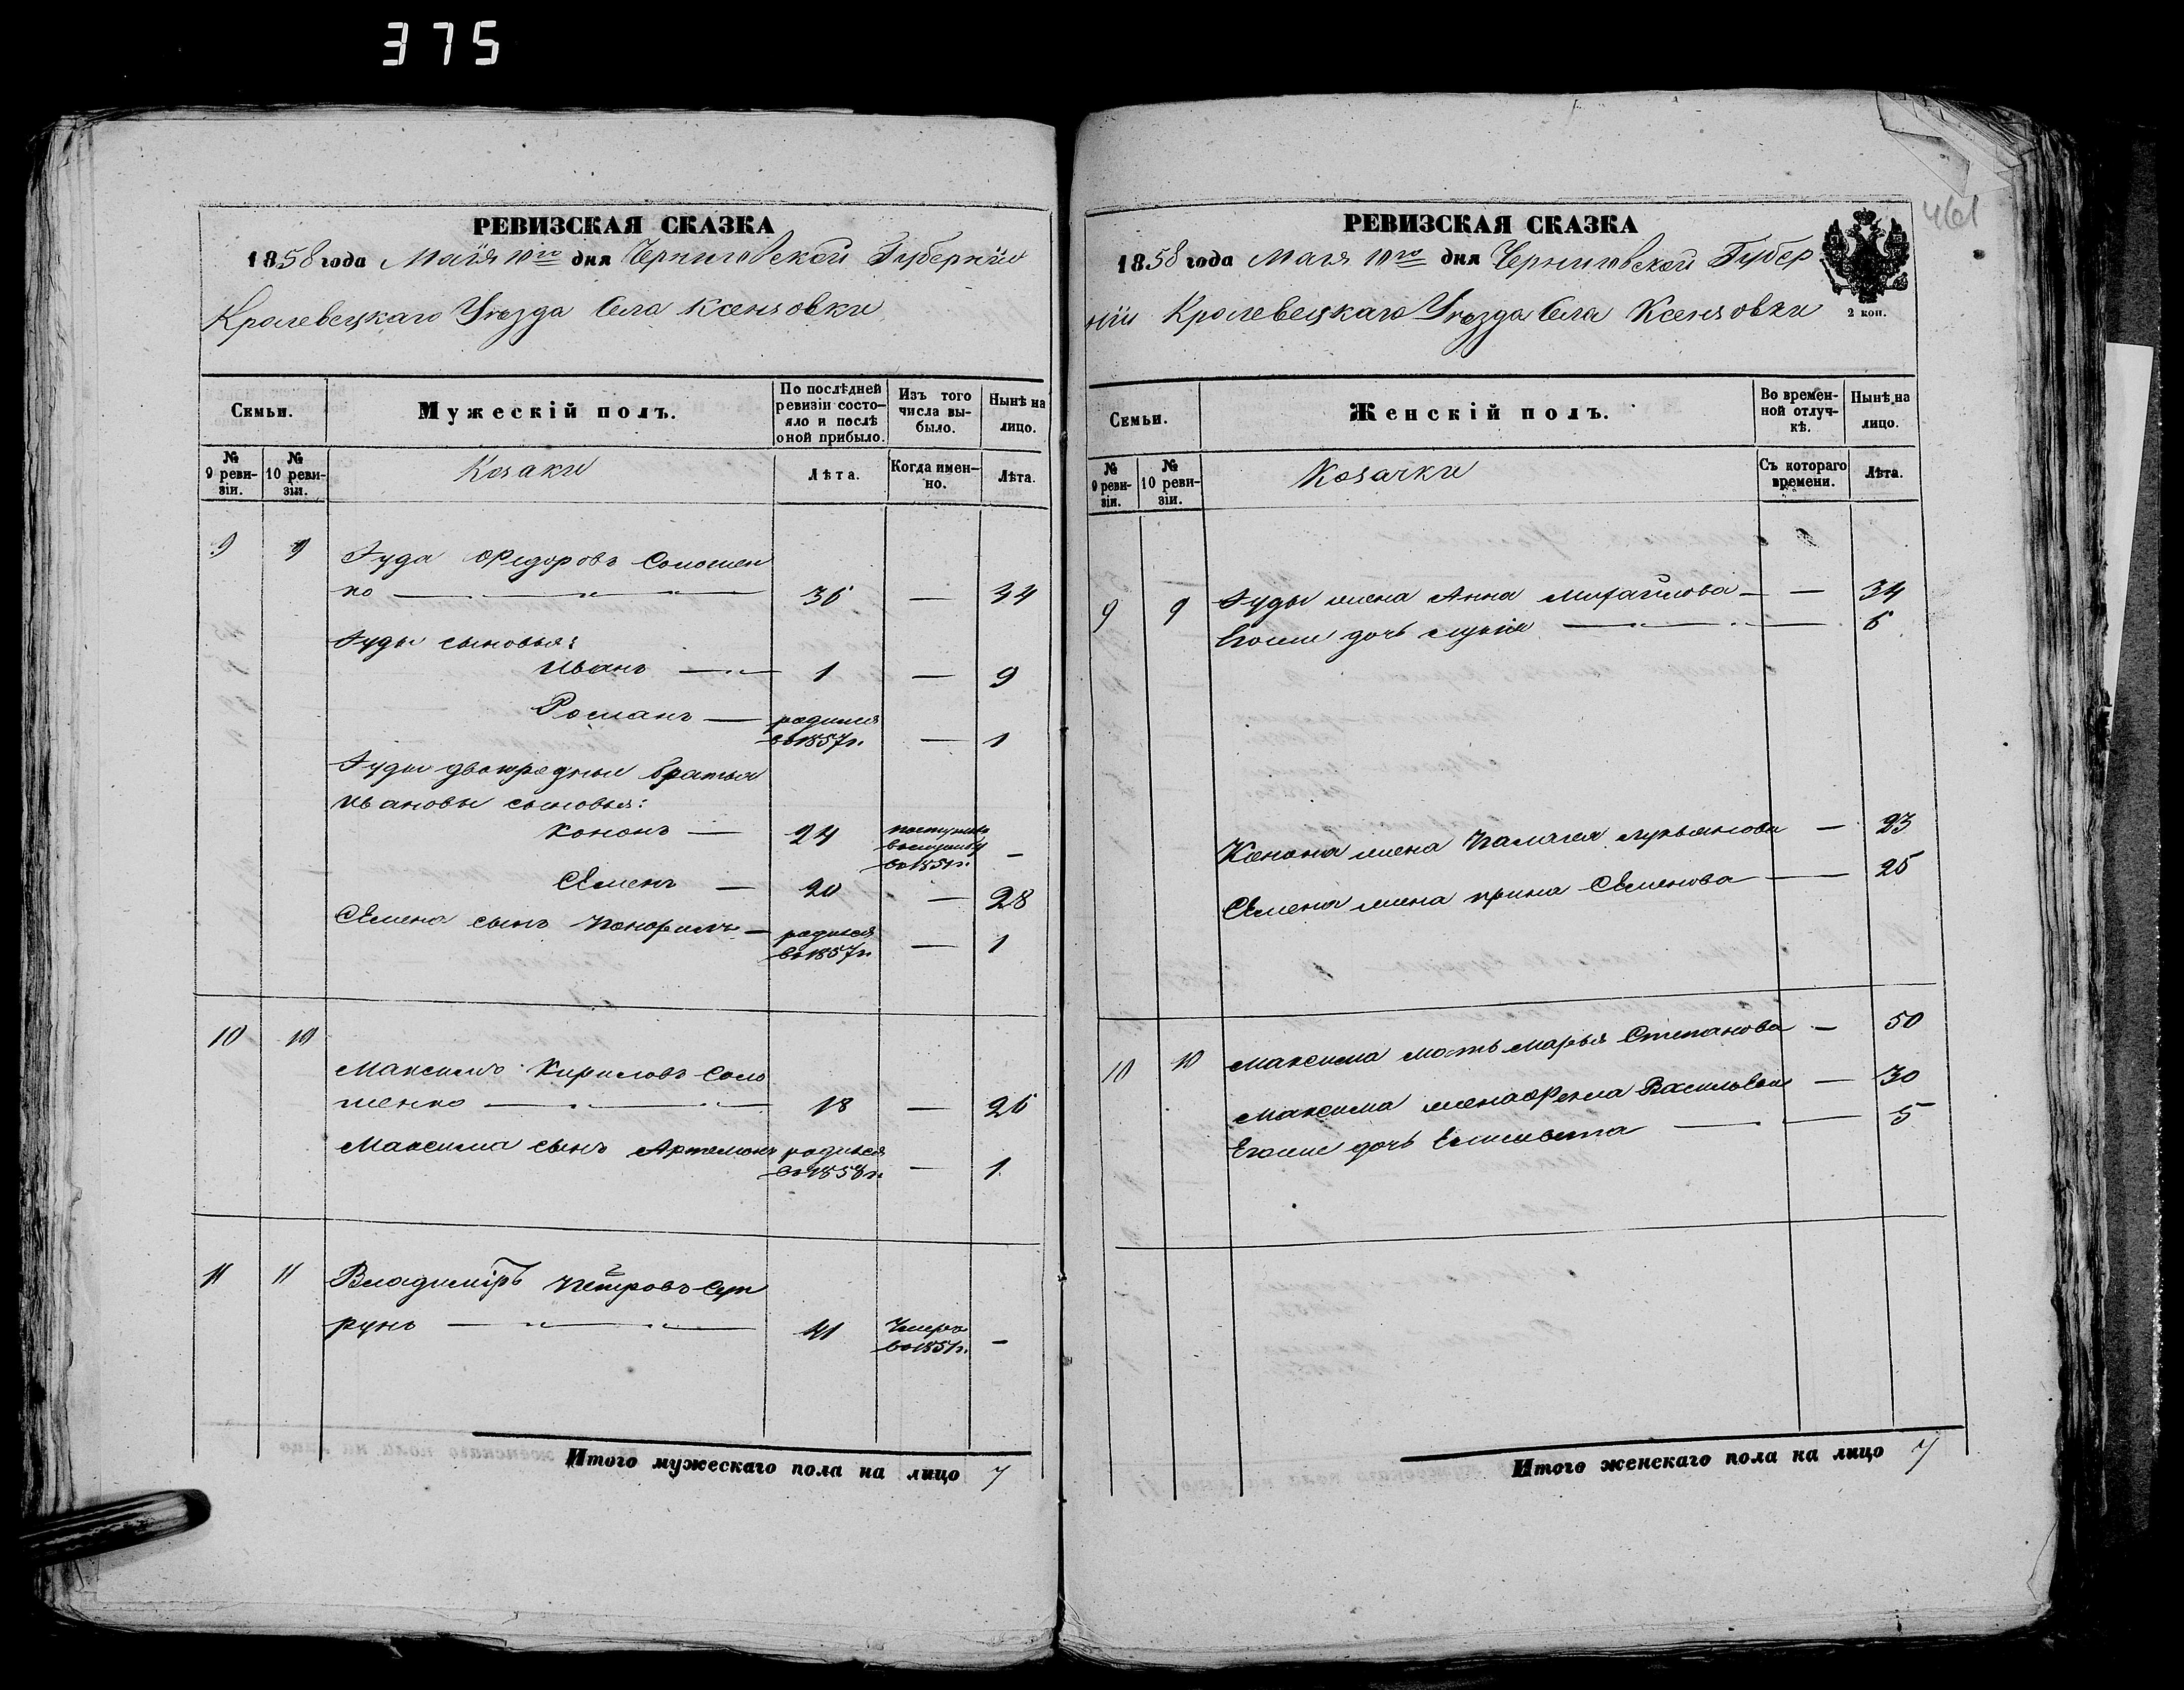 375
РЕВИЗСКАЯ СКАЗКА
1858 года Маія 10го дня Черниговской Губерніи
Кролевецкаго Уѣзда Села Ксензовки
Семьи.
Мужескій полъ.
По послѣдней ревизіи состояло и послѣ оной прибыло.
Изъ того числа выбыло.
Нынѣ на лицо.
№ 9 ревизіи.
№ 10 ревизіи.
Козаки
Лѣта.
Когда именно.
Лѣта.
9 9 Іуда Федоровъ Соломен
ко 36 — 44
Іуды сыновья:
Иванъ 1 — 9
Романъ — родился
въ 1857г. — 1
Іуды двоюродные братья
Ивановы сыновья:
Кононъ — 24 въ 1851г. —
Семенъ — 20 — 28
Семена сынъ — родился
въ 1857г. — 1
10 10
Максимъ Кириловъ Соло
менко 18 — 26
Максима сынъ Артемонъ родился
въ 1858г. — 1
11 11 Владиміръ Петровъ Суп
рунъ 41 Умеръ
въ 1851г. —
Итого мужескаго пола на лицо 7
461
РЕВИЗСКАЯ СКАЗКА
1858 года Маія 10го дня Черниговской Губер
ніи Кролевецкаго Уѣзда Села Ксензовки
2 коп.
Семьи.
Женскій полъ.
Во временной отлучкѣ.
Нынѣ на лицо.
№ 9 ревизіи.
№ 10 ревизіи.
Козачки
Съ котораго времени.
Лѣта.
9 9 Іуды жена Анна Михайлова — — 34
Егоже дочь 6
Конона жена Палагея Лукьянова — 23
Семена жена Ирина Семенова — 25
10 10 Максима мать Марья Степанова — 50
Максима жена Фекла Васильева — 30
Егоже дочь Елисавета — 5
Итого женскаго пола на лицо 7